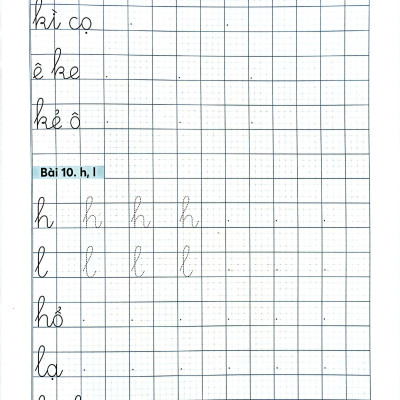 kì cọ
ê ke
kẻ ô
Bài 10. h, l
h h h h
l l l l
hồ
lạ